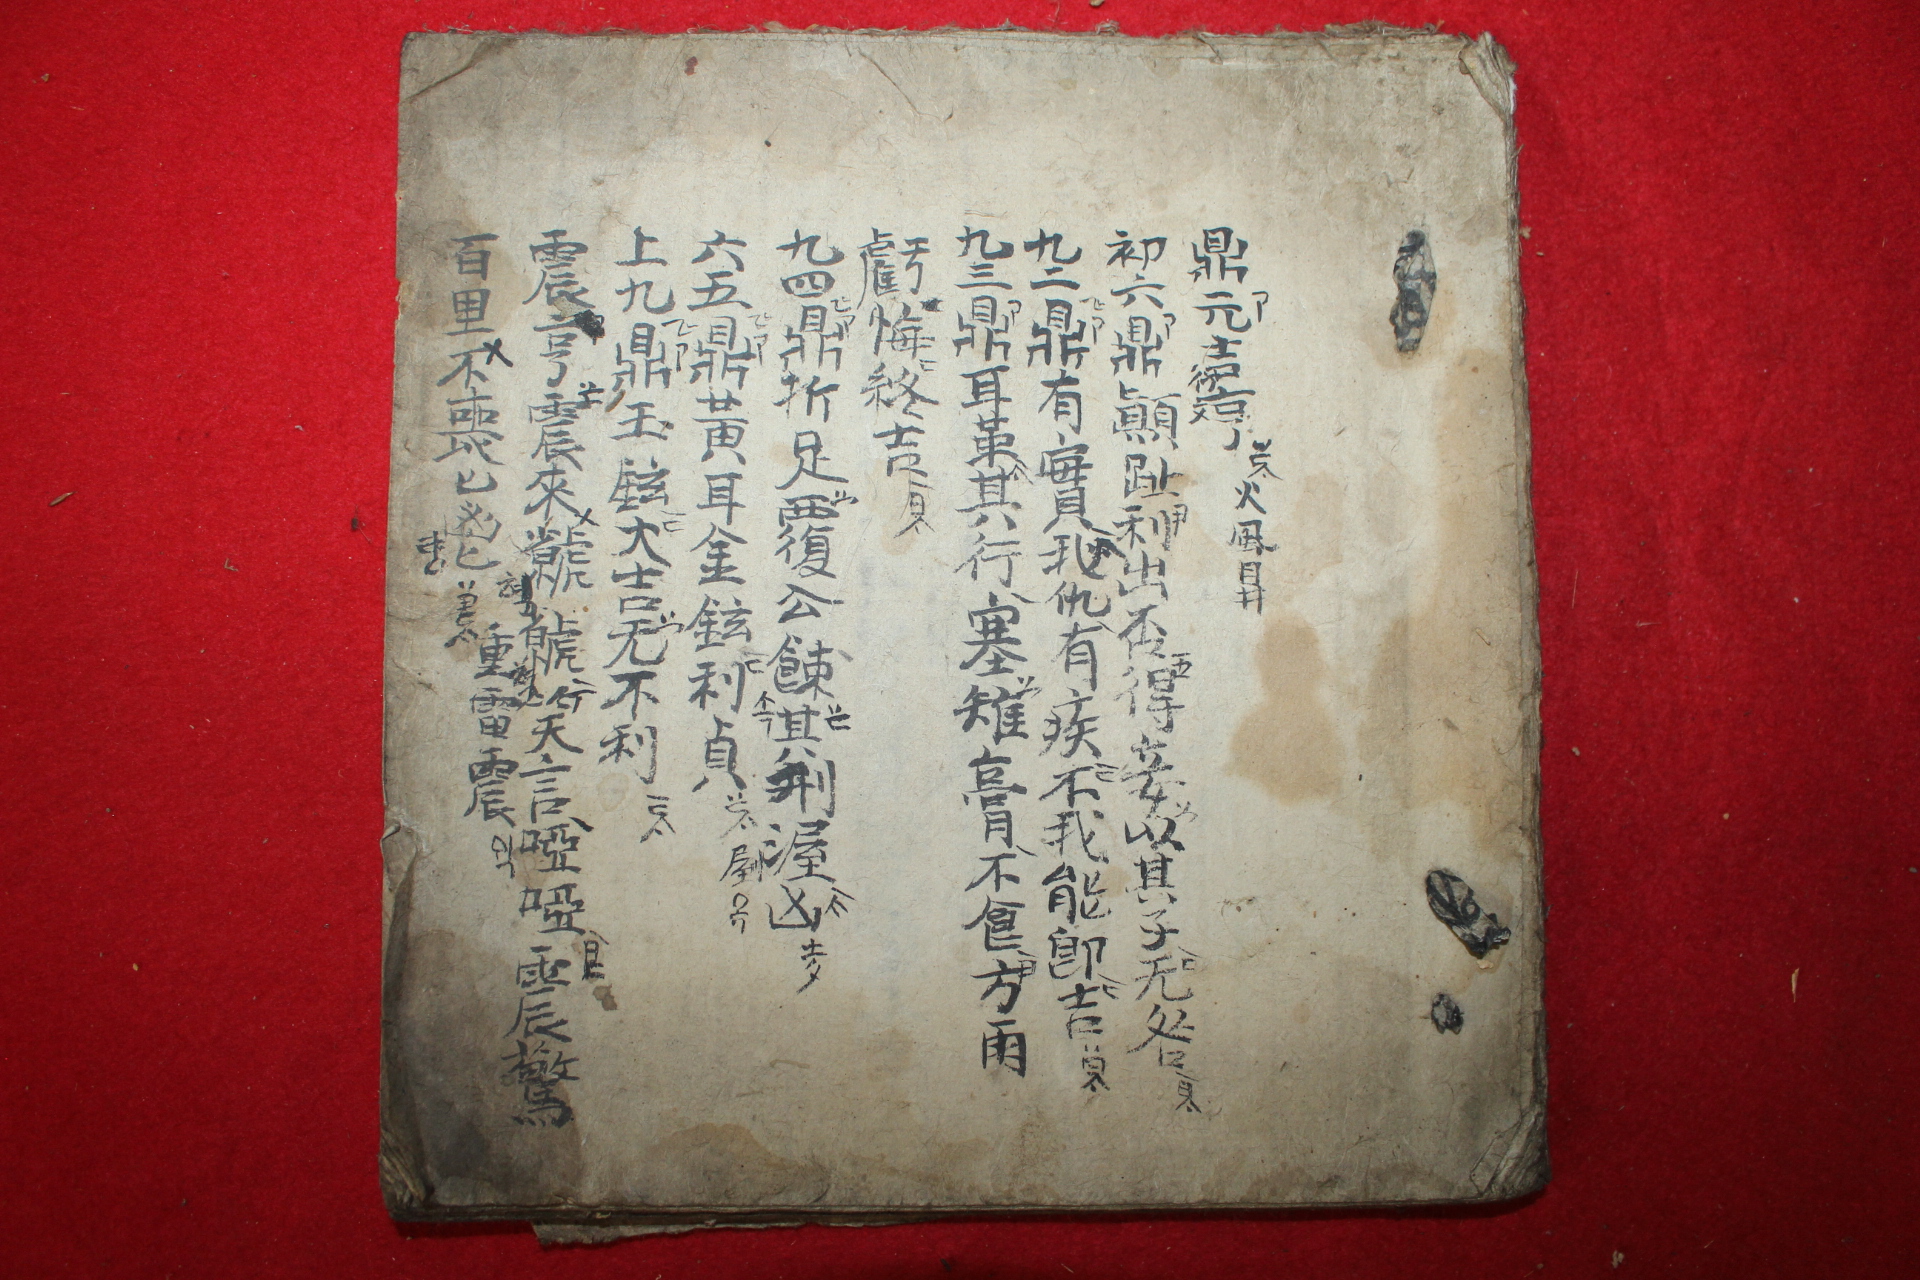 鼎元吉亨 火風鼎
初六鼎顚趾利出否得妾以其子无咎
九二鼎有實我仇有疾不我能卽吉
九三鼎耳革其行塞雉膏不食方雨
虧悔終吉
九四鼎折足覆公餗其刑渥凶
六五鼎黃耳金鉉利貞
上九鼎玉鉉大吉无不利
震亨震來虩虩笑言啞啞震驚
百里不喪匕鬯 重雷震